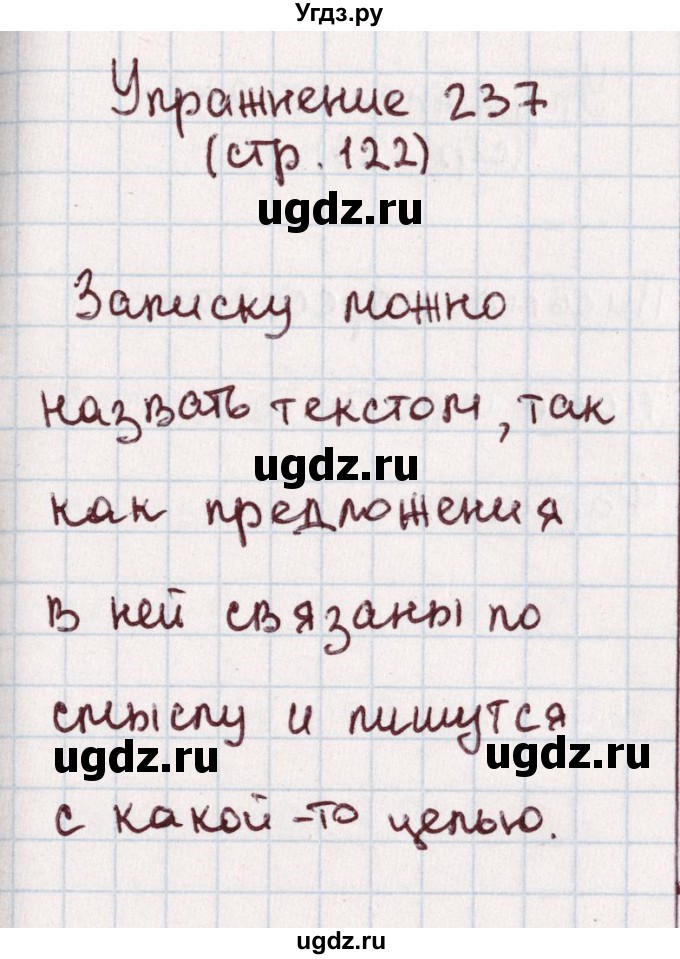 Угдз.ру
Упражнение 237
(стр. 122)
ugdz.ru
Записку можно
назвать текстом, так
ugdz.ru
как предложения
в ней связаны по
смыслу и пишутся
ugdz.ru
ugdz.ru
с какой-то целью.
ugdz.ru